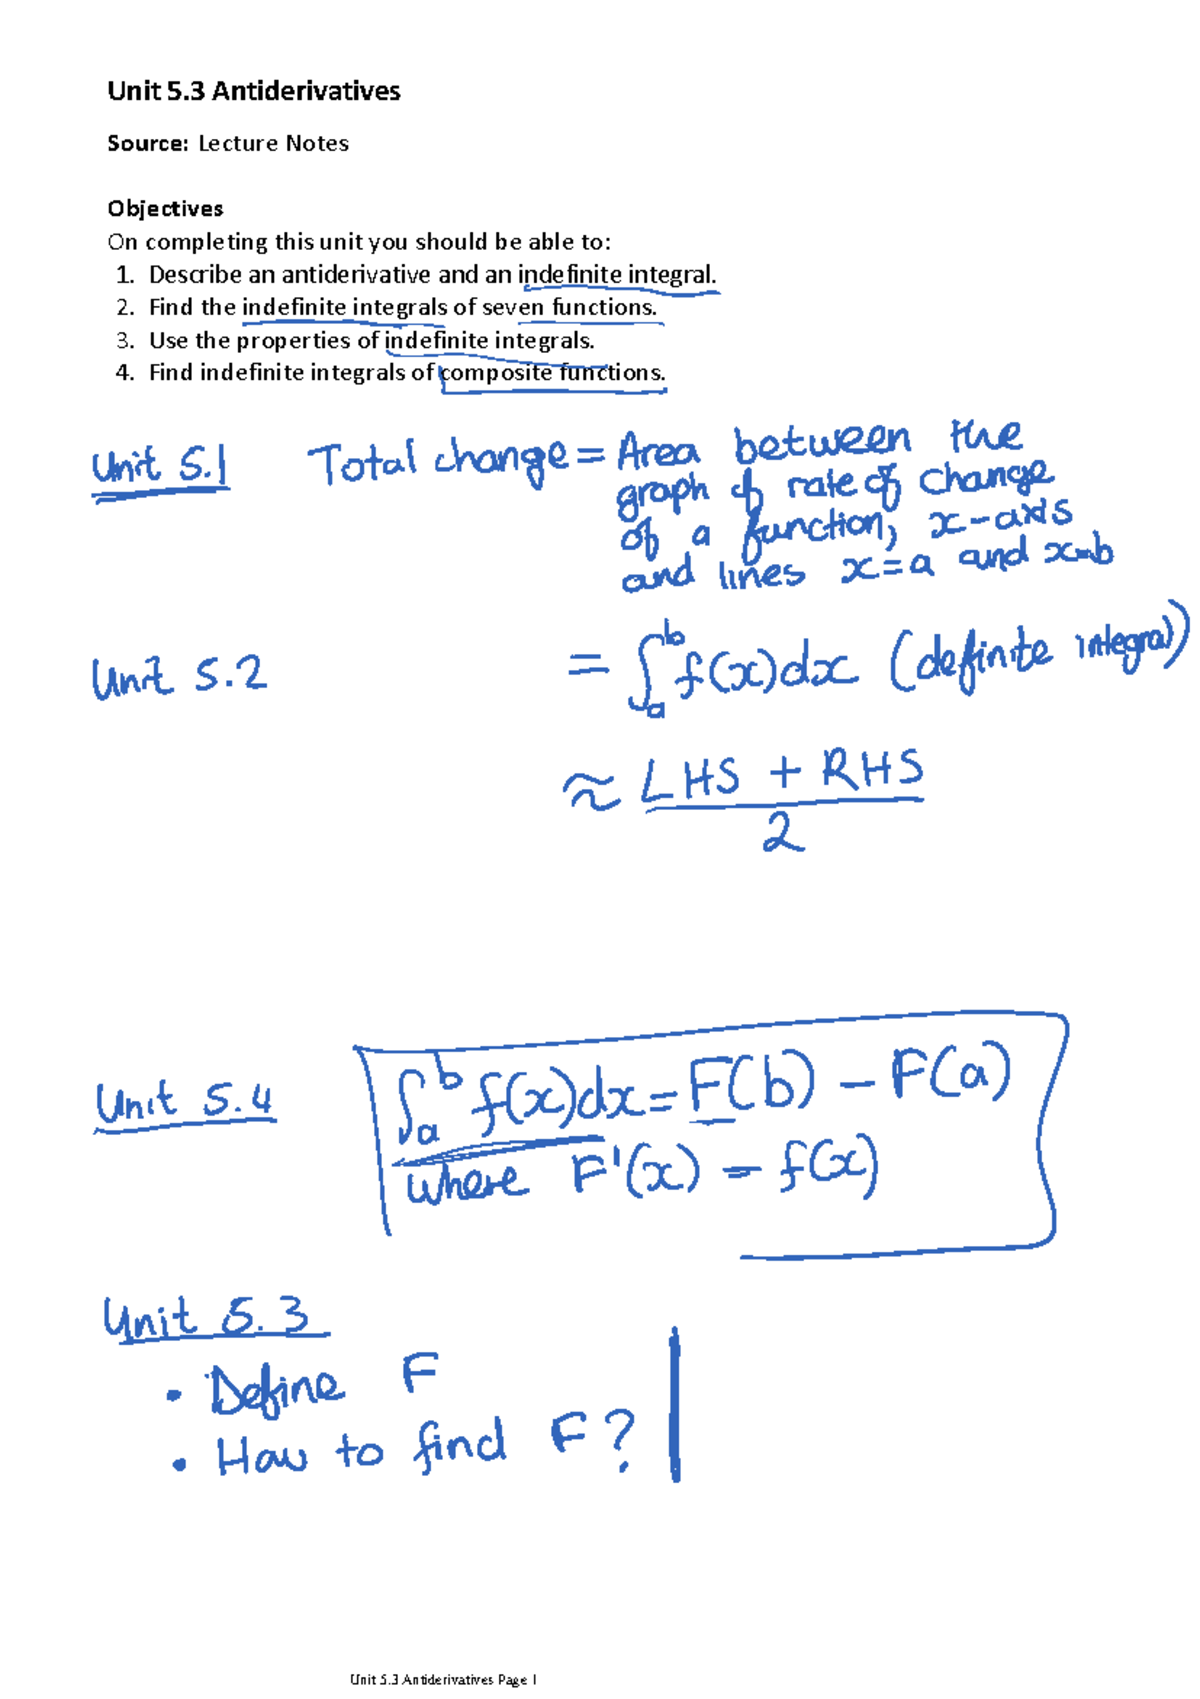 Unit 5.3 Antiderivatives
Source: Lecture Notes
Objectives
On completing this unit you should be able to:
1. Describe an antiderivative and an indefinite integral.
2. Find the indefinite integrals of seven functions.
3. Use the properties of indefinite integrals.
4. Find indefinite integrals of composite functions.
Unit 5.1 Total change = Area between the
graph of rate of change
of a function, x-axis
and lines x=a and x=b
Unit 5.2 = ∫_a^b f(x)dx (definite integral)
≈ (LHS + RHS)/2
Unit 5.4 ∫_a^b f(x)dx = F(b) - F(a)
where F'(x) = f(x)
Unit 5.3
• Define F
• How to find F?
Unit 5.3 Antiderivatives Page 1